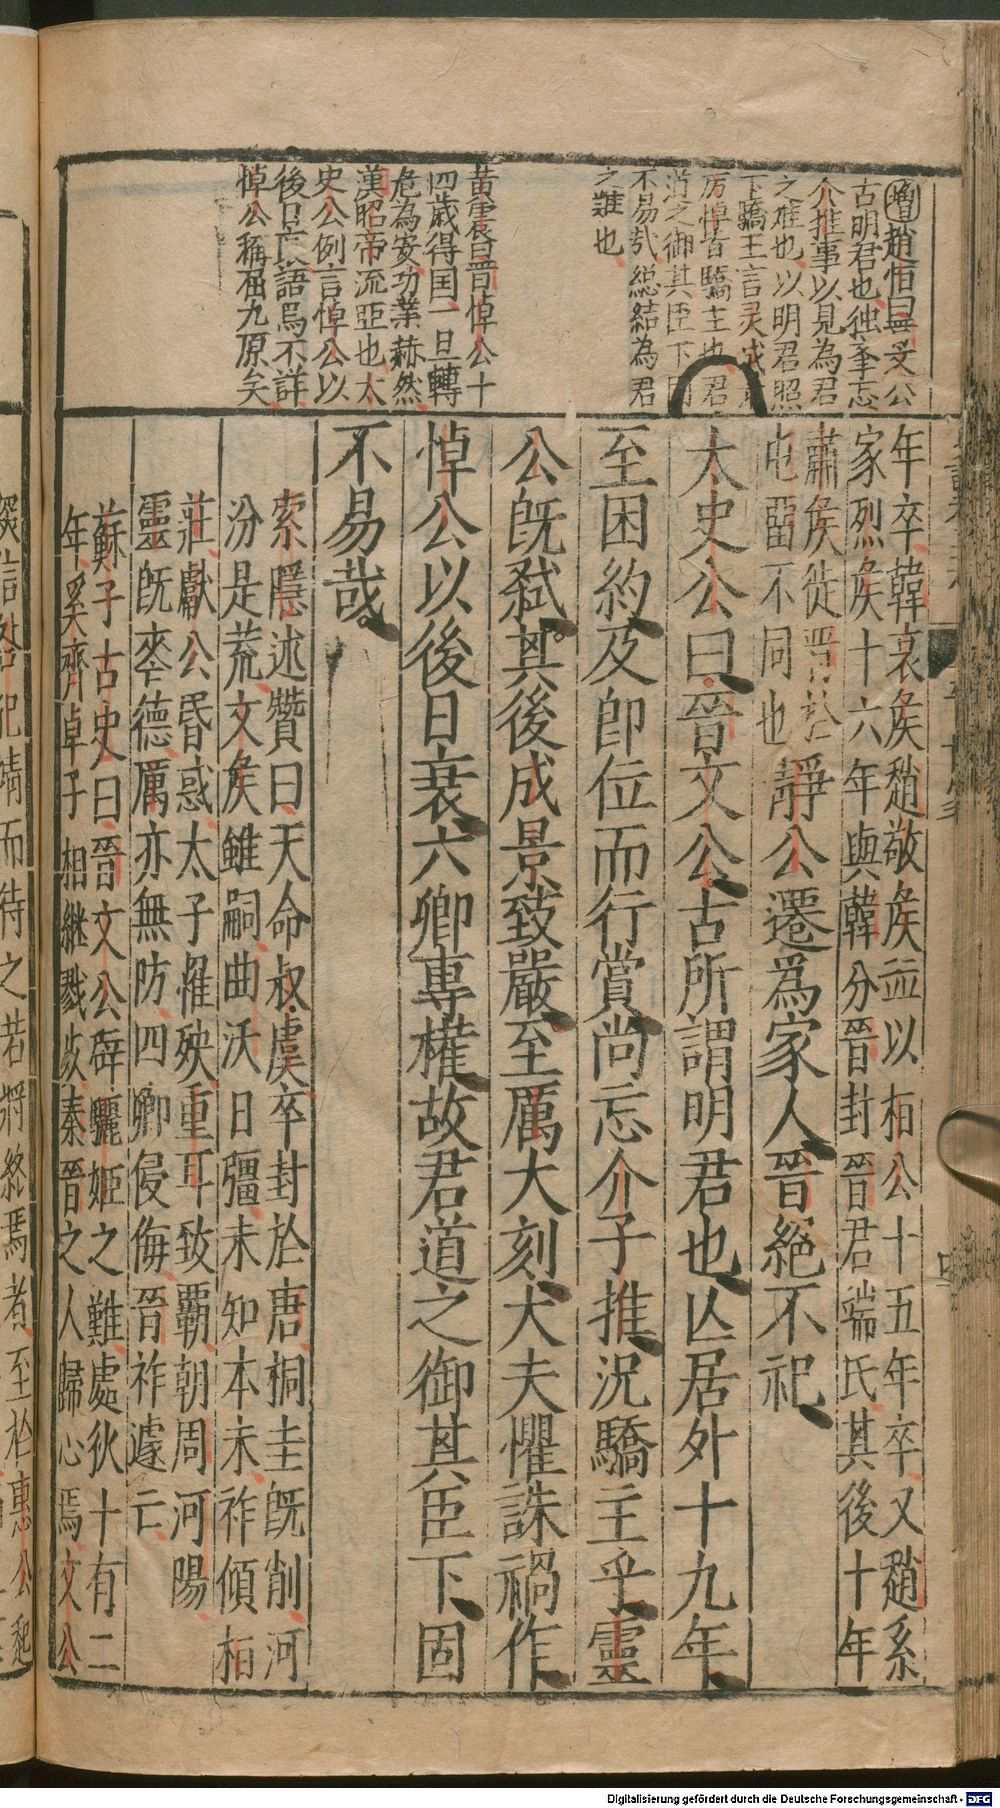 增趙恒曰晉文公
古明君也独夆忘
介推事以見為君
之难也以明君照
下驕主言灵成
厉悼皆驕主也君
道之御其臣下固
不易㢤緫結為君
之難也
黄震曰晉悼公十
四歲得国一旦轉
危為安功業赫然
漢昭帝流亞也太
史公例言悼公以
後日衰語焉不詳
悼公稱屈九原矣
年卒韓哀矦趙敬矦並以栢公十五年卒又趙系
家烈矦十六年與韓分晉封晉君端氏其後十年
肅矦徙晉
屯畱不同也
静公遷為家人晉絕不祀
太史公曰晉文公古所謂明君也亾居外十九年
至困約及卽位而行賞尚忘介子推況驕主乎靈
公旣弑其後成景致嚴至厲大刻大夫懼誅禍作
悼公以後日衰六卿專權故君道之御其臣下固
不易哉
索隱述贊曰天命叔虞卒封於唐桐圭旣削河
汾是荒文矦雖嗣曲沃日彊未知本末祚傾栢
莊獻公昏惑太子罹殃重耳致霸朝周河陽
靈旣喪德厲亦無防四卿侵侮晉祚遽亡
蘇子古史曰晉文公辟驪姬之難處狄十有二
年奚齊卓子相继戮妀秦晉之人歸心焉文公
而待之若將終焉者至於惠公起
Digitalisierung gefördert durch die Deutsche Forschungsgemeinschaft - DFG